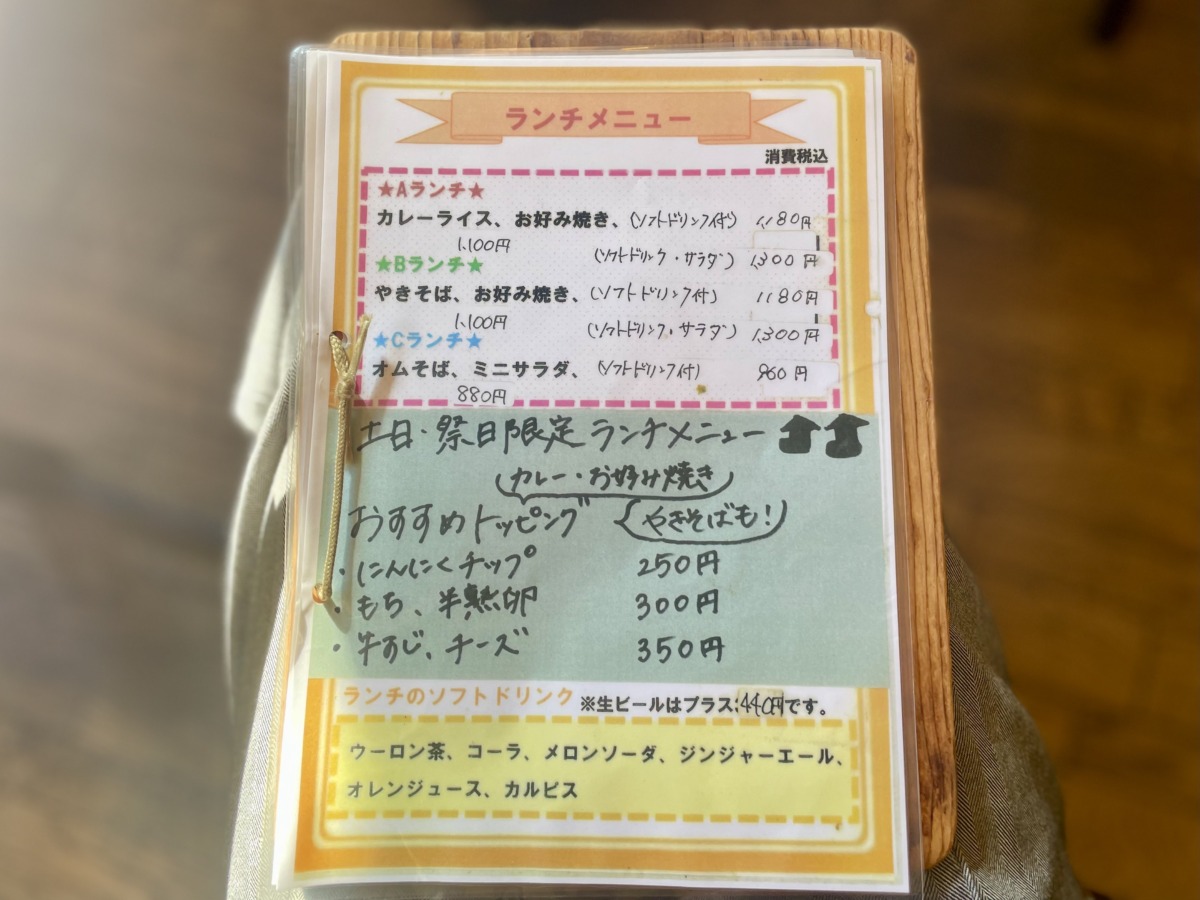 ランチメニュー
消費税込
★Aランチ★
カレーライス、お好み焼き、(ソフトドリンク付) 1,180円
1,100円 (ソフトドリンク・サラダ) 1,300円
★Bランチ★
やきそば、お好み焼き、(ソフトドリンク付) 1180円
1,100円 (ソフトドリンク・サラダ) 1,300円
★Cランチ★
オムそば、ミニサラダ、(ソフトドリンク付) 960円
880円
土日・祭日限定 ランチメニュー
(カレー・お好み焼き)
おすすめトッピング (やきそばも!)
・にんにくチップ 250円
・もち、半熟卵 300円
・牛すじ、チーズ 350円
ランチのソフトドリンク ※生ビールはプラス:440円です。
ウーロン茶、コーラ、メロンソーダ、ジンジャーエール、
オレンジュース、カルピス